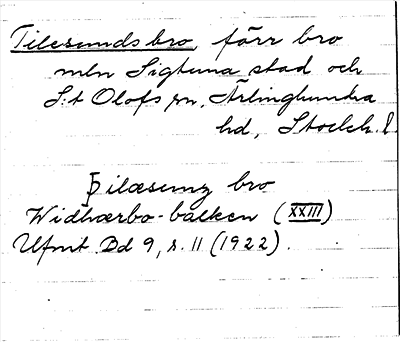 Tilesunds bro, förr bro
mln Sigtuna stad och
S:t Olofs sn, Ärlinghundra
hd, Stockh. l.
Þilæsunz bro
Widhærbo-balken (XXIII)
Ufmt Bd 9, s. 11 (1922).